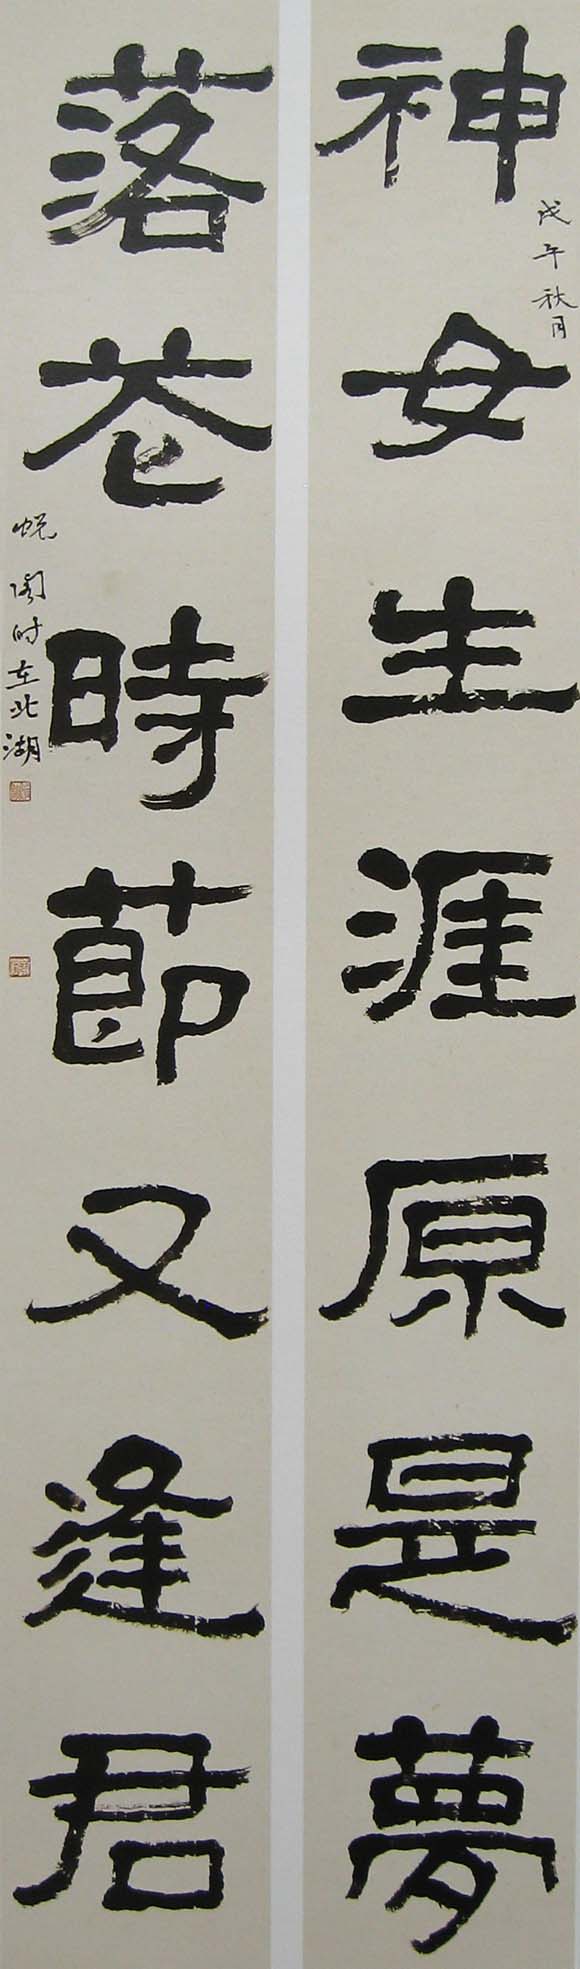 神女生涯原是夢
戊午秋月
落花時節又逢君
蜕闇时在北湖